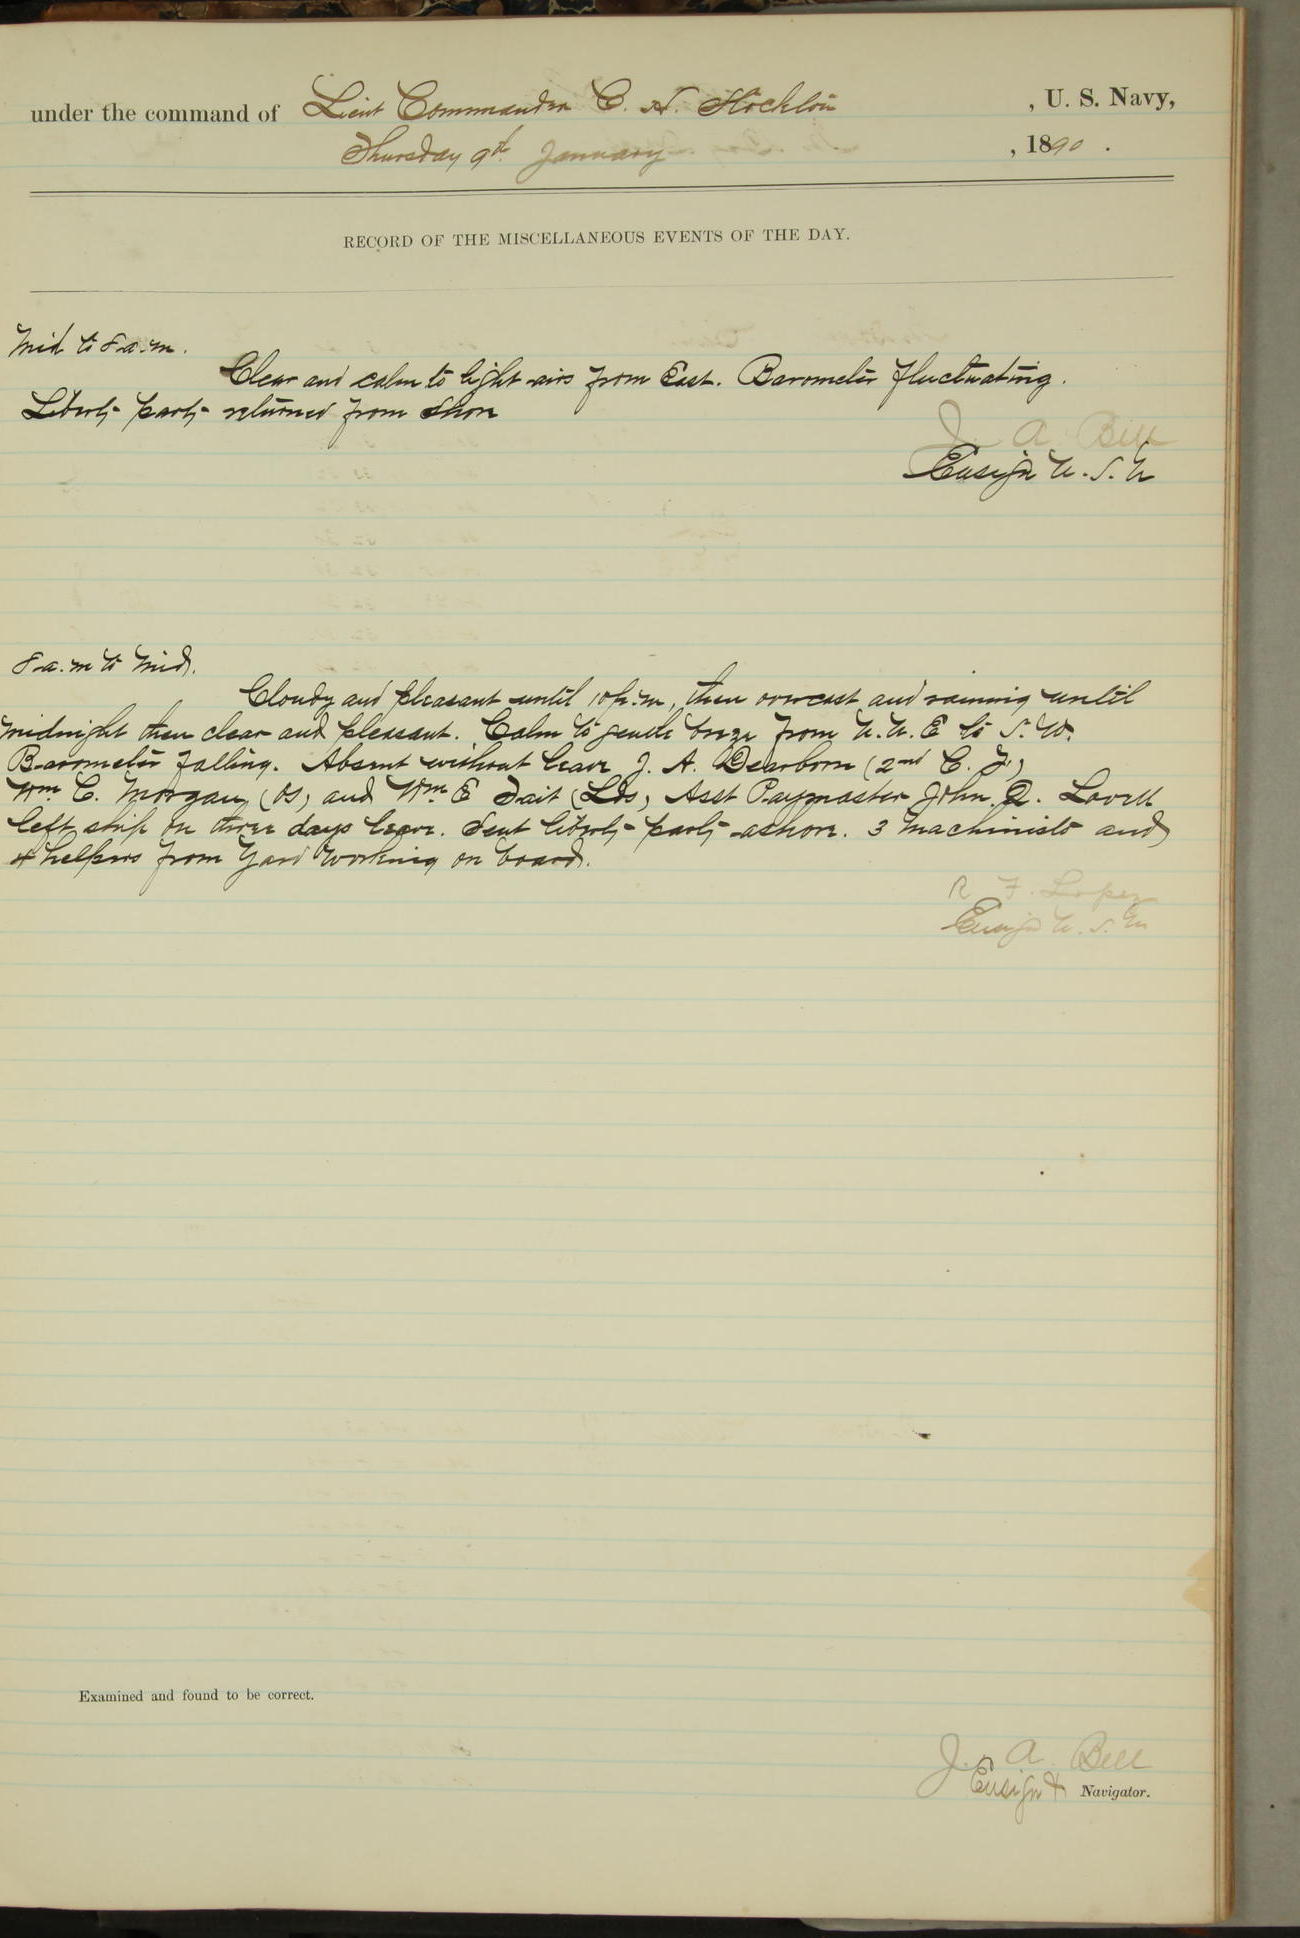 under the command of Lieut Commander C. H. Stockton , U. S. Navy,
Thursday 9th January , 1890 .
RECORD OF THE MISCELLANEOUS EVENTS OF THE DAY.
Mid to 8 a.m.
Clear and calm to light airs from East. Barometer fluctuating.
Liberty party returned from shore
J. A. Bell
Ensign U. S. N
8 a.m to Mid.
Cloudy and pleasant until 10 p.m, then overcast and raining until
midnight then clear and pleasant. Calm to gentle breeze from N.N.E to S.W.
Barometer falling. Absent without leave J. A. Dearborn (2nd C. F.)
Wm. C. Morgan, (OS) and Wm E Tait (Lds) Asst Paymaster John Q. Lovell
left ship on three days leave. Sent liberty party ashore. 3 machinists and
4 helpers from Yard working on board.
R F. Lopez
Ensign U. S. N
Examined and found to be correct.
J. A. Bell
Ensign & Navigator.